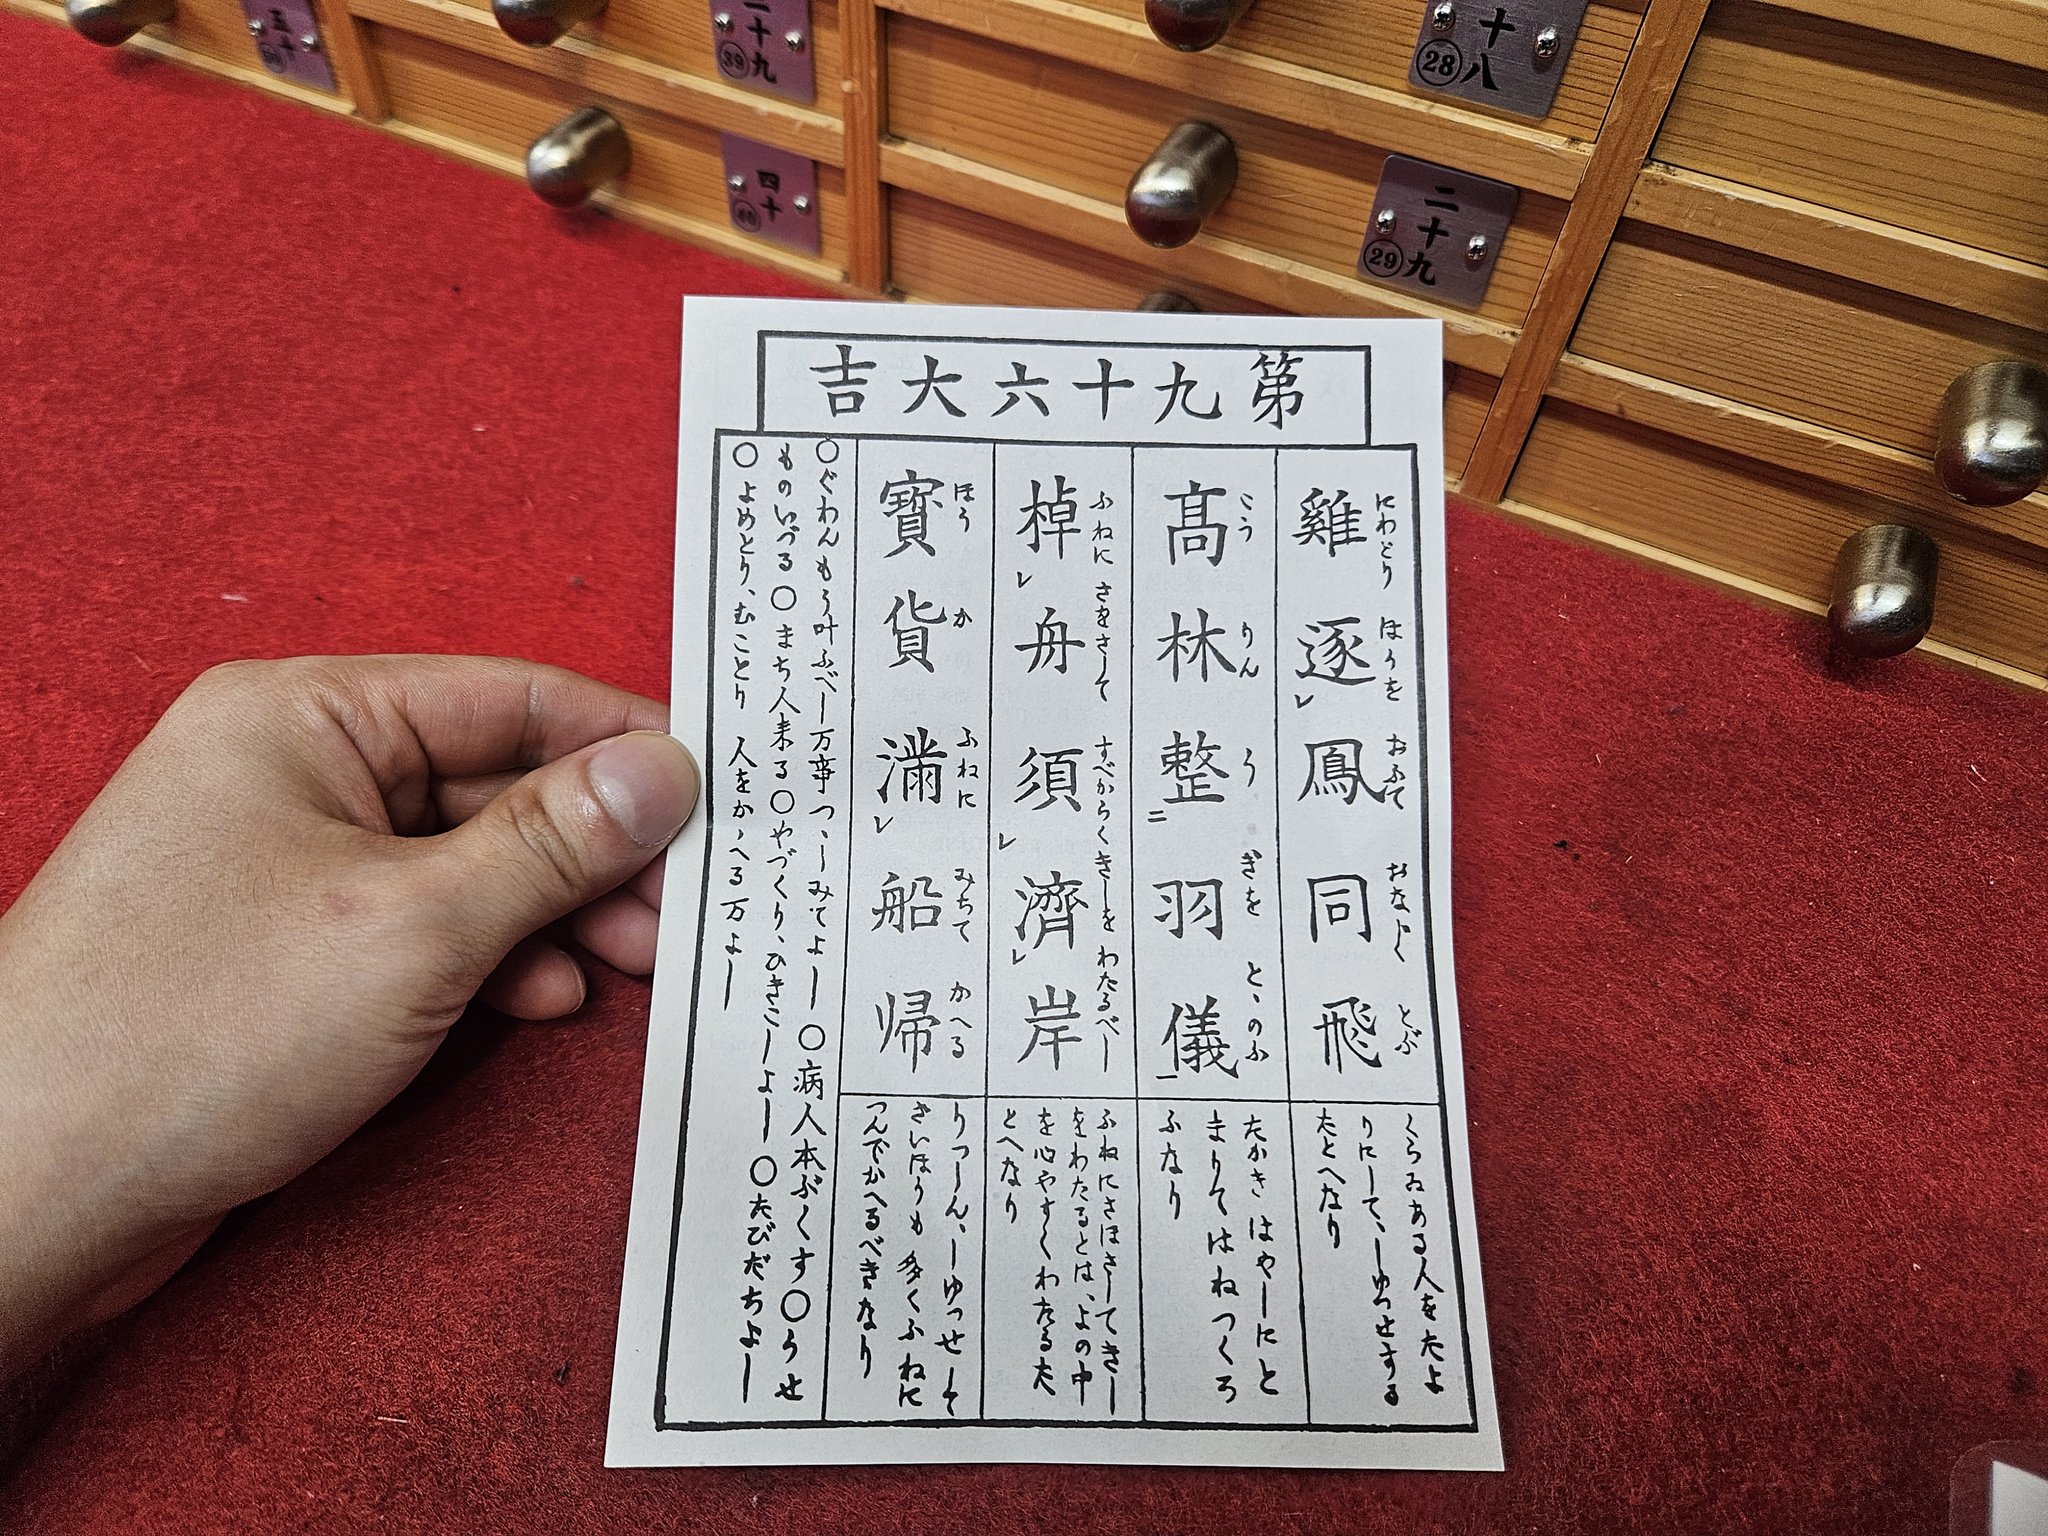 五十
39
九
四十
40
十八
28
二十九
29
第九十六大吉
にわとり ほうを おふて おなじく とぶ
雞逐レ鳳同飛
くらゐある人をたよ
りにして、しゆつせする
たとへなり
こう りん う ぎを とゝのふ
髙林整二羽儀一
たかき はやしにと
まりてはねつくろ
ふなり
ふねに さをさして すべからくきしを わたるべし
棹レ舟須レ濟レ岸
ふねにさほさしてきし
をわたるとは、よの中
を心やすくわたるた
とへなり
ほう か ふねに みちて かへる
寶貨滿レ船帰
りつしん、しゆつせして
ざいほうも多くふねに
つんでかへるべきなり
○ぐわんもう叶ふべし万事つゝしみてよし○病人本ぶくす○うせ
ものいづる○まち人来る○やづくり、ひきこしよし○たびだちよし
○よめとり、むことり 人をかゝへる万よし